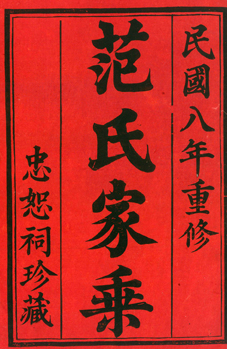 民國八年重修
范氏家乘
忠恕祠珍藏